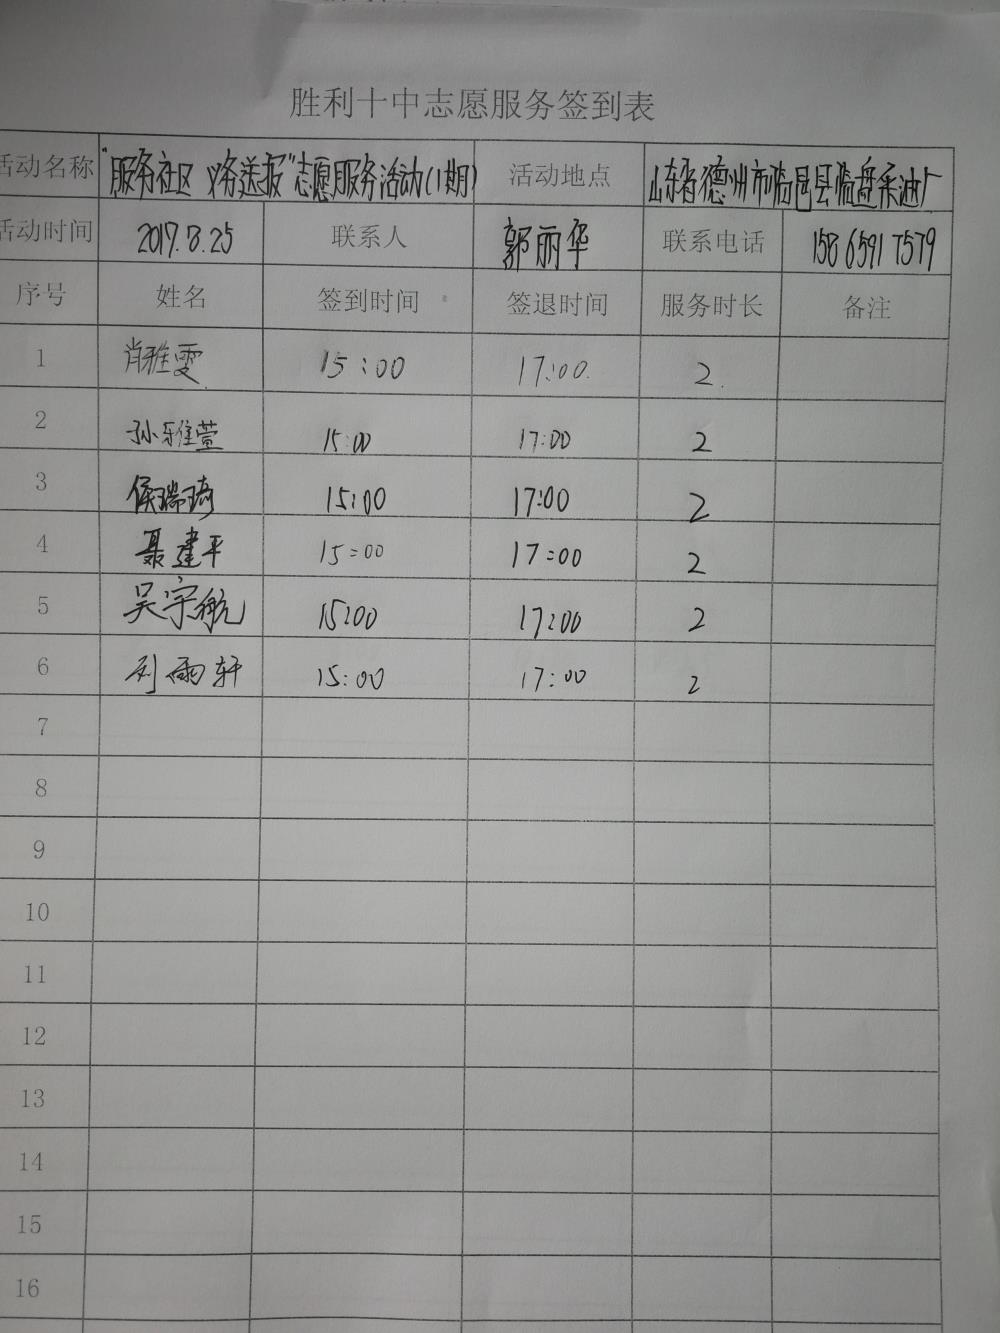 胜利十中志愿服务签到表
活动名称 "服务社区 义务送报"志愿服务活动(1期) 活动地点 山东省德州市临邑县临盘采油厂
活动时间 2017.8.25 联系人 郭丽华 联系电话 15865917579
序号 姓名 签到时间 签退时间 服务时长 备注
1 肖雅雯 15:00 17:00 2
2 孙雅萱 15:00 17:00 2
3 侯瑞琦 15:00 17:00 2
4 聂建平 15:00 17:00 2
5 吴宇航 15:00 17:00 2
6 刘雨轩 15:00 17:00 2
7
8
9
10
11
12
13
14
15
16